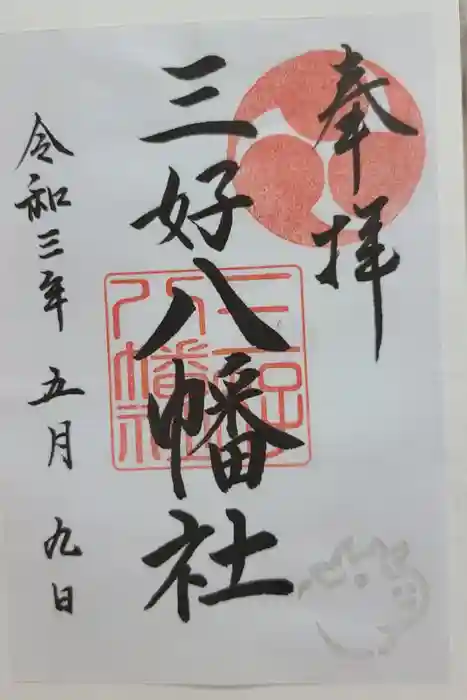 奉拝
三好八幡社
令和三年 五月 九日